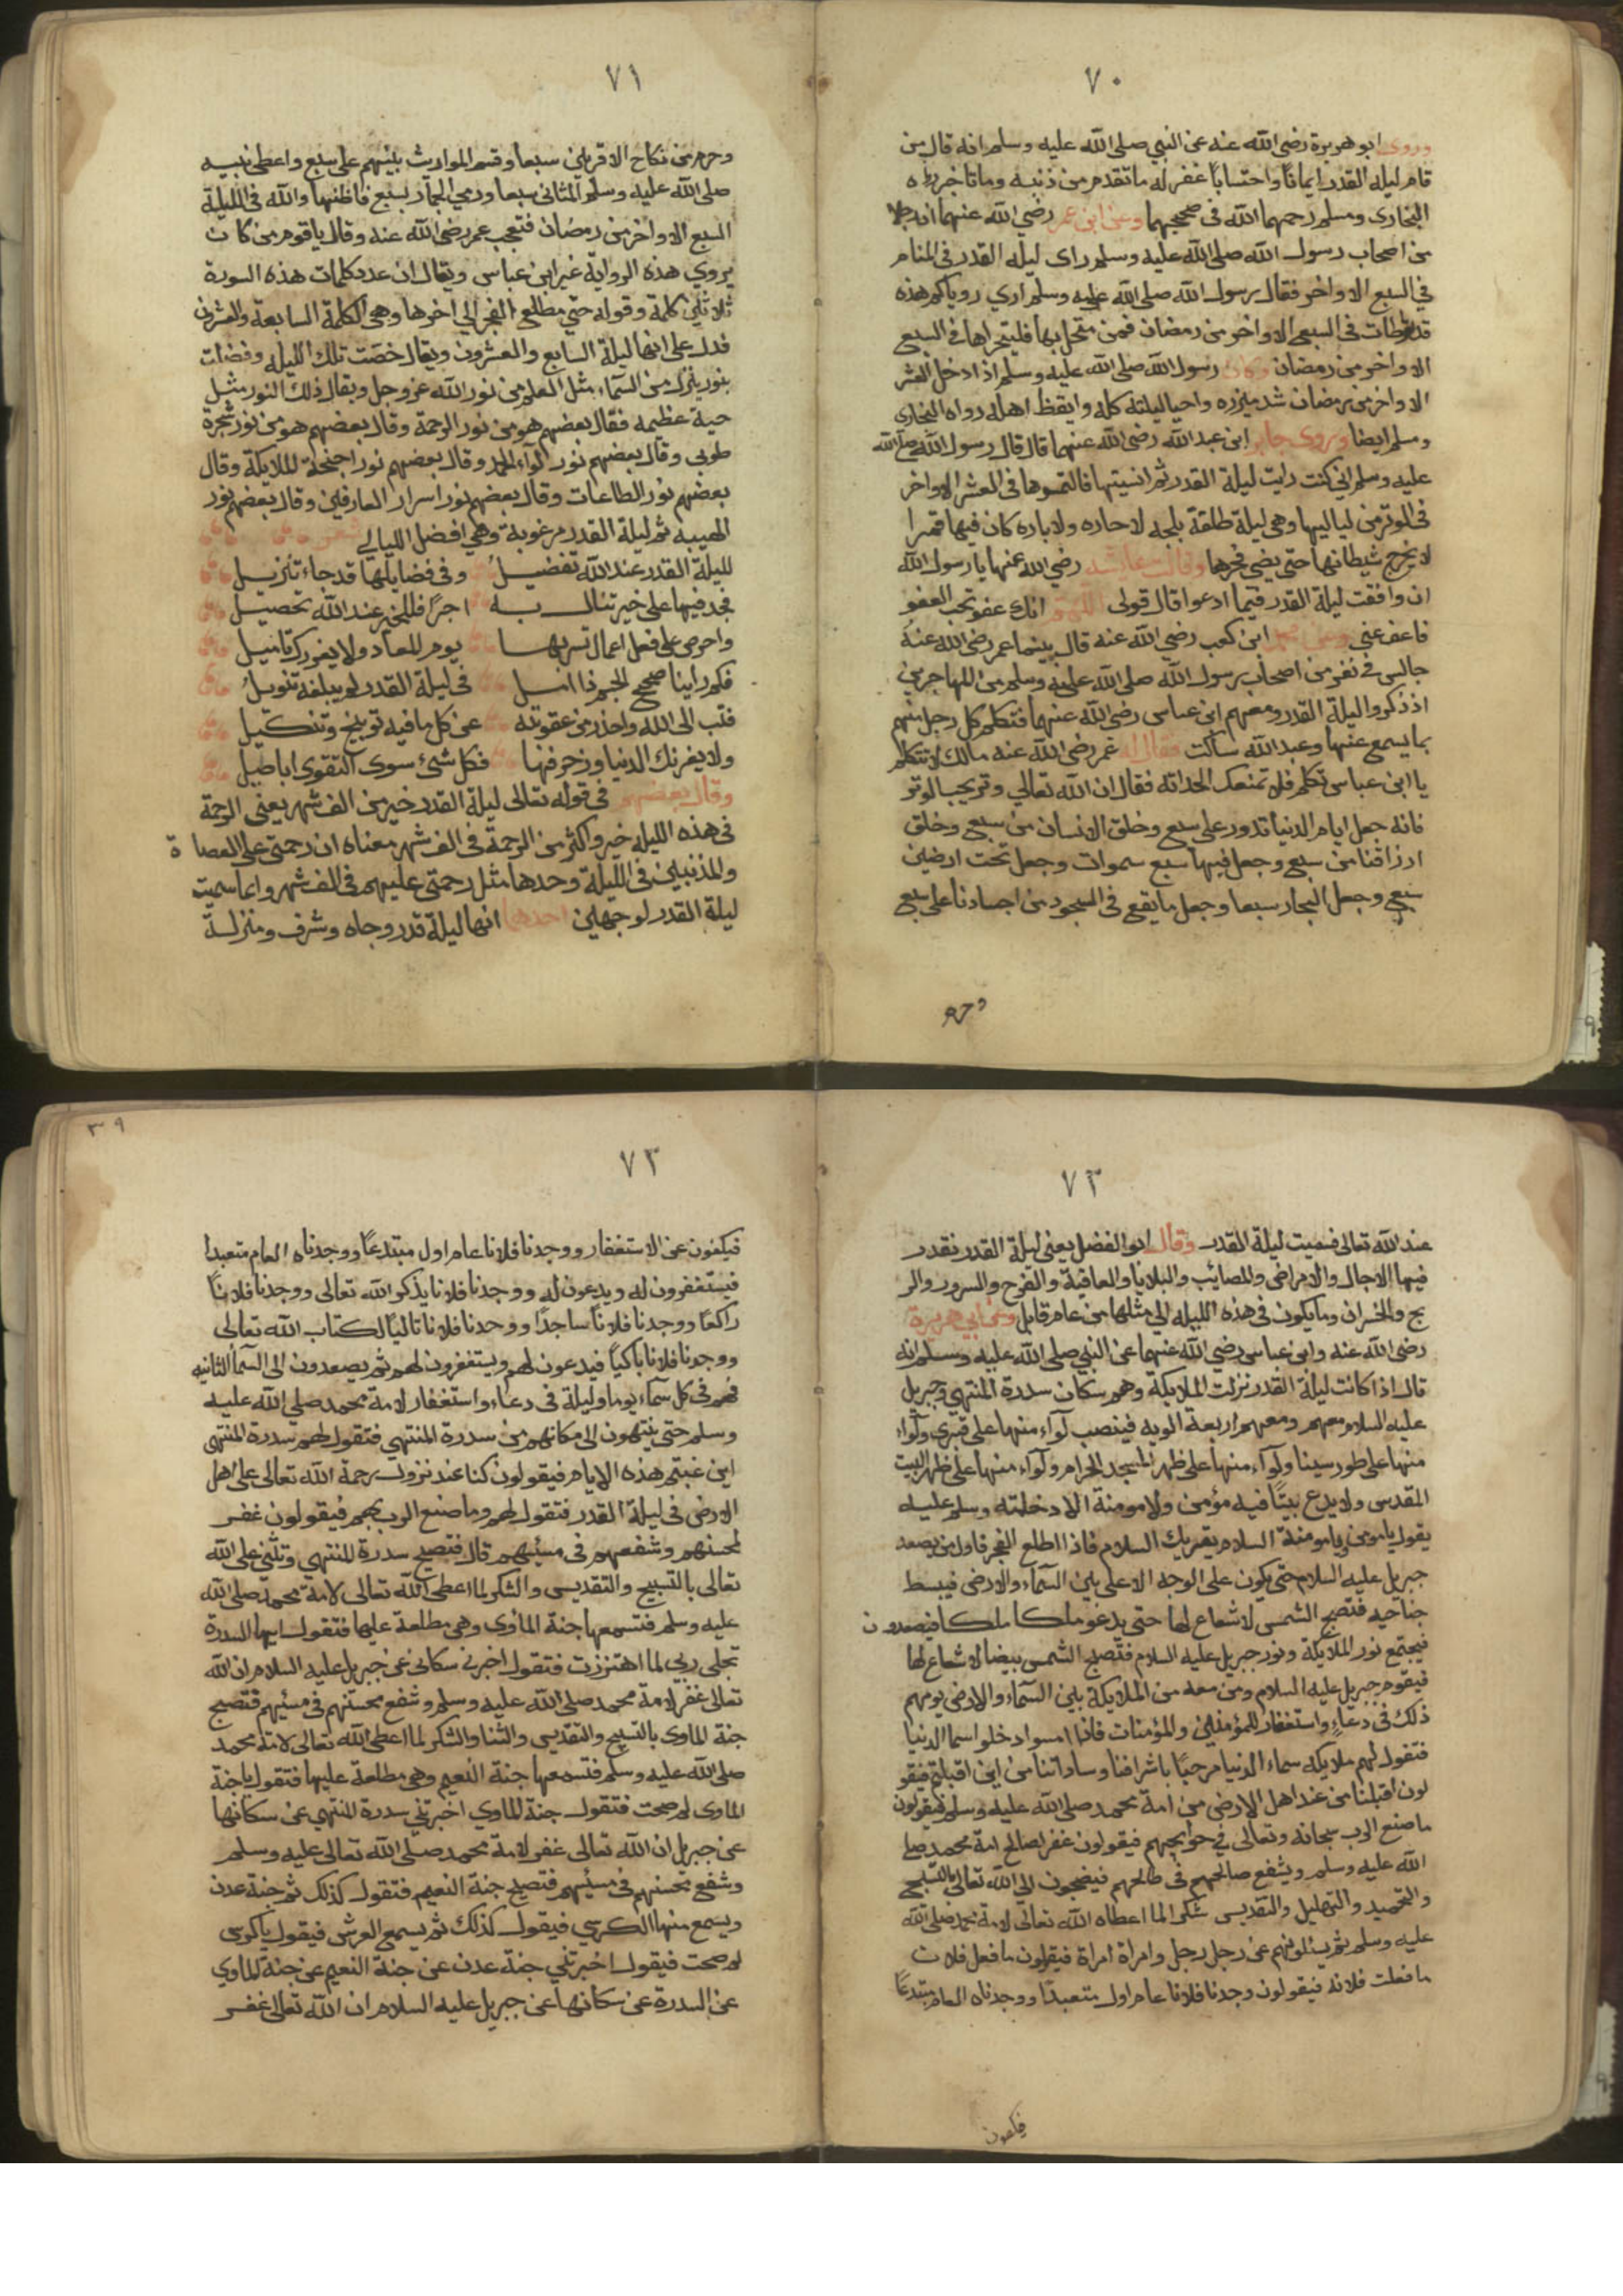 ٧٠
وروى ابو هريرة رضي الله عنه عن النبي صلى الله عليه وسلم انه قال من
قام ليله القدر ايمانا واحتسابا غفر له ما تقدم من ذنبه وما تاخر رواه
البخاري ومسلم رحمهما الله في صحيحهما وعن ابن عمر رضي الله عنهما ان رجلا
من اصحاب رسول الله صلى الله عليه وسلم راى ليله القدر في المنام
في السبع الاواخر فقال رسول الله صلى الله عليه وسلم اري روياكم هذه
قد تواطات في السبع الاواخر من رمضان فمن متحل بها فليتحراها في السبع
الاواخر من رمضان وكان رسول الله صلى الله عليه وسلم اذا دخل العشر
الاواخر من رمضان شد ميزره واحيا ليلته كله وايقظ اهله رواه البخاري
ومسلم ايضا وروى جابر ابن عبد الله رضي الله عنهما قال قال رسول الله صلى الله
عليه وسلم اني كنت رايت ليلة القدر ثم انسيتها فالتمسوها في العشر الاواخر
في الوتر من لياليها وهي ليلة طلقة بلجه لا حاره ولا باره كان فيها قمرا
لا يخرج شيطانها حتى يضي فجرها وقالت عايشه رضي الله عنها يا رسول الله
ان وافقت ليلة القدر فيما ادعوا قال قولى اللهم انك عفو تحب العفو
فاعف عني وعن محمد ابن كعب رضي الله عنه قال بينما عمر رضي الله عنه
جالس في نفر من اصحاب رسول الله صلى الله عليه وسلم من المهاجرين
اذ ذكروا ليلة القدر ومعهم ابن عباس رضي الله عنهما فتكلم كل رجل منهم
بما يسمع عنها وعبد الله ساكت فقال له عمر رضي الله عنه مالك لا تتكلم
يا ابن عباس تكلم فلا تمنعك الحداثه فقال ان الله تعالي وتر يحب الوتر
فانه جعل ايام الدنيا تدور على سبع وخلق الانسان من سبع وخلق
ارزاقنا من سبع وجعل فيها سبع سموات وجعل تحت ارضين
سبع وجعل البحار سبعا وجعل ما يقع في السجود من اجسادنا على سبع
وحرم
٧١
وحرم من نكاح الاقربين سبعا وقسم المواريث بينهم على سبع واعطى نبيه
صلى الله عليه وسلم المثاني سبعا ورمي الجمار بسبع فاظنها والله في الليلة
السبع الاواخر من رمضان فتعجب عمر رضي الله عنه وقال يا قوم من كان
يروي هذه الرواية غير ابن عباس ويقال ان عدد كلمات هذه السورة
ثلاثين كلمة وقوله حتى مطلع الفجر الي اخرها وهي الكلمة السابعة والعشرين
فدل على انها ليلة السابع والعشرون ويقال خصت تلك الليله وفضلت
بنور ينزل من السماء مثل العلم من نور الله عز وجل ويقال ذلك النور مثل
حية عظيمه فقال بعضهم هو من نور الرحمة وقال بعضهم هو من نور شجرة
طوبى وقال بعضهم نور لواء الحمد وقال بعضهم نور اجنحة الملايكة وقال
بعضهم نور الطاعات وقال بعضهم نور اسرار العارفين وقال بعضهم نور
الهيبه ثم ليلة القدر مرغوبة وهي افضل الليالي شعر
لليلة القدر عند الله تفضيل وفي فضايلها قد جاء تنزيل
فجد فيها على خير تنال به اجرا فللخير عند الله تحصيل
واحرص على فعل اعمال تسر بها يوم المعاد ولا يغررك تاميل
فكم راينا صحيح الجسم ذا امل في ليلة القدر لم يبلغه تنويل
فتب الى الله واحذر من عقوبته عن كل ما فيه توبيخ وتنكيل
ولا يغرنك الدنيا وزخرفها فكل شئ سوى التقوى اباطيل
وقال بعضهم في قوله تعالى ليلة القدر خير من الف شهر يعني الرحمة
في هذه الليله خير واكثر من الرحمة في الف شهر معناه ان رحمتي على العصاة
والمذنبين في الليلة وحدها مثل رحمتي عليهم في الف شهر وانما سميت
ليلة القدر لوجهين احدهما انها ليلة قدر وجاه وشرف ومنزلة
٧٢
عند الله تعالى فسميت ليلة القدر وقال ابو الفضل يعنى ليلة القدر نقدر
فيها الاجال والامراض والمصائب والبلايا والعافية والفرح والسرور والر
بح والخسران وما يكون في هذه الليله الي مثلها من عام قابل وعن ابي هريرة
رضي الله عنه وابن عباس رضي الله عنهما عن النبي صلى الله عليه وسلم انه
قال اذا كانت ليلة القدر نزلت الملايكة وهم سكان سدرة المنتهي وجبريل
عليه السلام معهم ومعهم اربعة الويه فينصب لواء منها على قبري ولواء
منها على طور سينا ولواء منها على ظهر المسجد الحرام ولواء منها على ظهر البيت
المقدس ولا يدع بيتا فيه مؤمن ولا مومنة الا دخلته وسلم عليه
يقول يا مومن ويا مومنة السلام يقريك السلام فاذا اطلع الفجر فاول من يصعد
جبريل عليه السلام حتى يكون على الوجه الاعلى بين السماء والارض فيبسط
جناحيه فتصبح الشمس لا شعاع لها حتى يدعو ملكا ملكا فيصعدون
فيجتمع نور الملايكة ونور جبريل عليه السلام فتصبح الشمس بيضا لا شعاع لها
فيقوم جبريل عليه السلام ومن معه من الملايكة بين السماء والارض يومهم
ذلك في دعاء واستغفار للمؤمنين والمؤمنات فاذا امسوا دخلوا سما الدنيا
فتقول لهم ملايكه سماء الدنيا مرحبا باشرافنا وساداتنا من اين اقبلتم فيقو
لون اقبلنا من عند اهل الارض من امة محمد صلى الله عليه وسلم فيقولون
ما صنع الرب سبحانه وتعالى في حوايجهم فيقولون غفر لصالح امة محمد صلى
الله عليه وسلم ويشفع صالحهم في طالحهم فيضجون الي الله تعالى بالتسبيح
والتحميد والتهليل والتقديس شكرا لما اعطاه الله تعالى لامة محمد صلى الله
عليه وسلم ثم يسئلونهم عن رجل رجل وامراة امراة فيقولون ما فعل فلان
ما فعلت فلانه فيقولون وجدنا فلانا عام اول متعبدا ووجدناه العام مبتدعا
فيكفون
٣٩
٧٣
فيكفون عن الاستغفار ووجدنا فلانا عام اول مبتدعا ووجدناه العام متعبدا
فيستغفرون له ويدعون له ووجدنا فلانا يذكر الله تعالى ووجدنا فلانا
راكعا ووجدنا فلانا ساجدا ووجدنا فلانا تاليا لكتاب الله تعالى
ووجدنا فلانا باكيا فيدعون لهم ويستغفرون لهم ثم يصعدون الى السما الثانيه
فهم في كل سماء يوما وليلة في دعاء واستغفار لامة محمد صلى الله عليه
وسلم حتى ينتهون الى مكانهم من سدرة المنتهي فتقول لهم سدرة المنتهي
اين غبتم هذه الايام فيقولون كنا عند نزول رحمة الله تعالى على اهل
الارض في ليلة القدر فتقول لهم وما صنع الرب بهم فيقولون غفر
لمحسنهم وشفعهم في مسيئهم قال فتصيح سدرة المنتهي وتثني على الله
تعالى بالتسبيح والتقديس والشكر لما اعطى الله تعالى لامة محمد صلى الله
عليه وسلم فتسمعها جنة المأوى وهي مطلعة عليها فتقول ايها السدرة
تجلى ربي لما اهتززت فتقول اخبرني سكاني عن جبريل عليه السلام ان الله
تعالى غفر لامة محمد صلى الله عليه وسلم وشفع محسنهم في مسيئهم فتصيح
جنة الماوى بالتسبيح والتقديس والثنا والشكر لما اعطى الله تعالى لامة محمد
صلى الله عليه وسلم فتسمعها جنة النعيم وهي مطلعة عليها فتقول يا جنة
الماوى لم صحت فتقول جنة الماوي اخبرتني سدرة المنتهي عن سكانها
عن جبريل ان الله تعالى غفر لامة محمد صلى الله تعالى عليه وسلم
وشفع محسنهم في مسيئهم فتصيح جنة النعيم فتقول كذلك ثم جنة عدن
ويسمع منها الكرسي فيقول كذلك ثم يسمع العرش فيقول يا كرسي
لم صحت فيقول اخبرتني جنة عدن عن جنة النعيم عن جنة الماوي
عن السدرة عن سكانها عن جبريل عليه السلام ان الله تعالى غفر